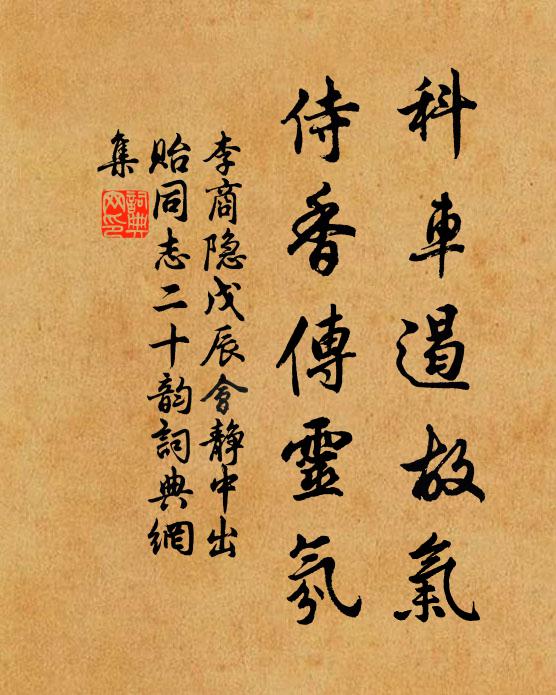 科車遏故氣
侍香傳靈氛
李商隐戊辰會静中出
貽同志二十韵詞典網
集
詞典网印